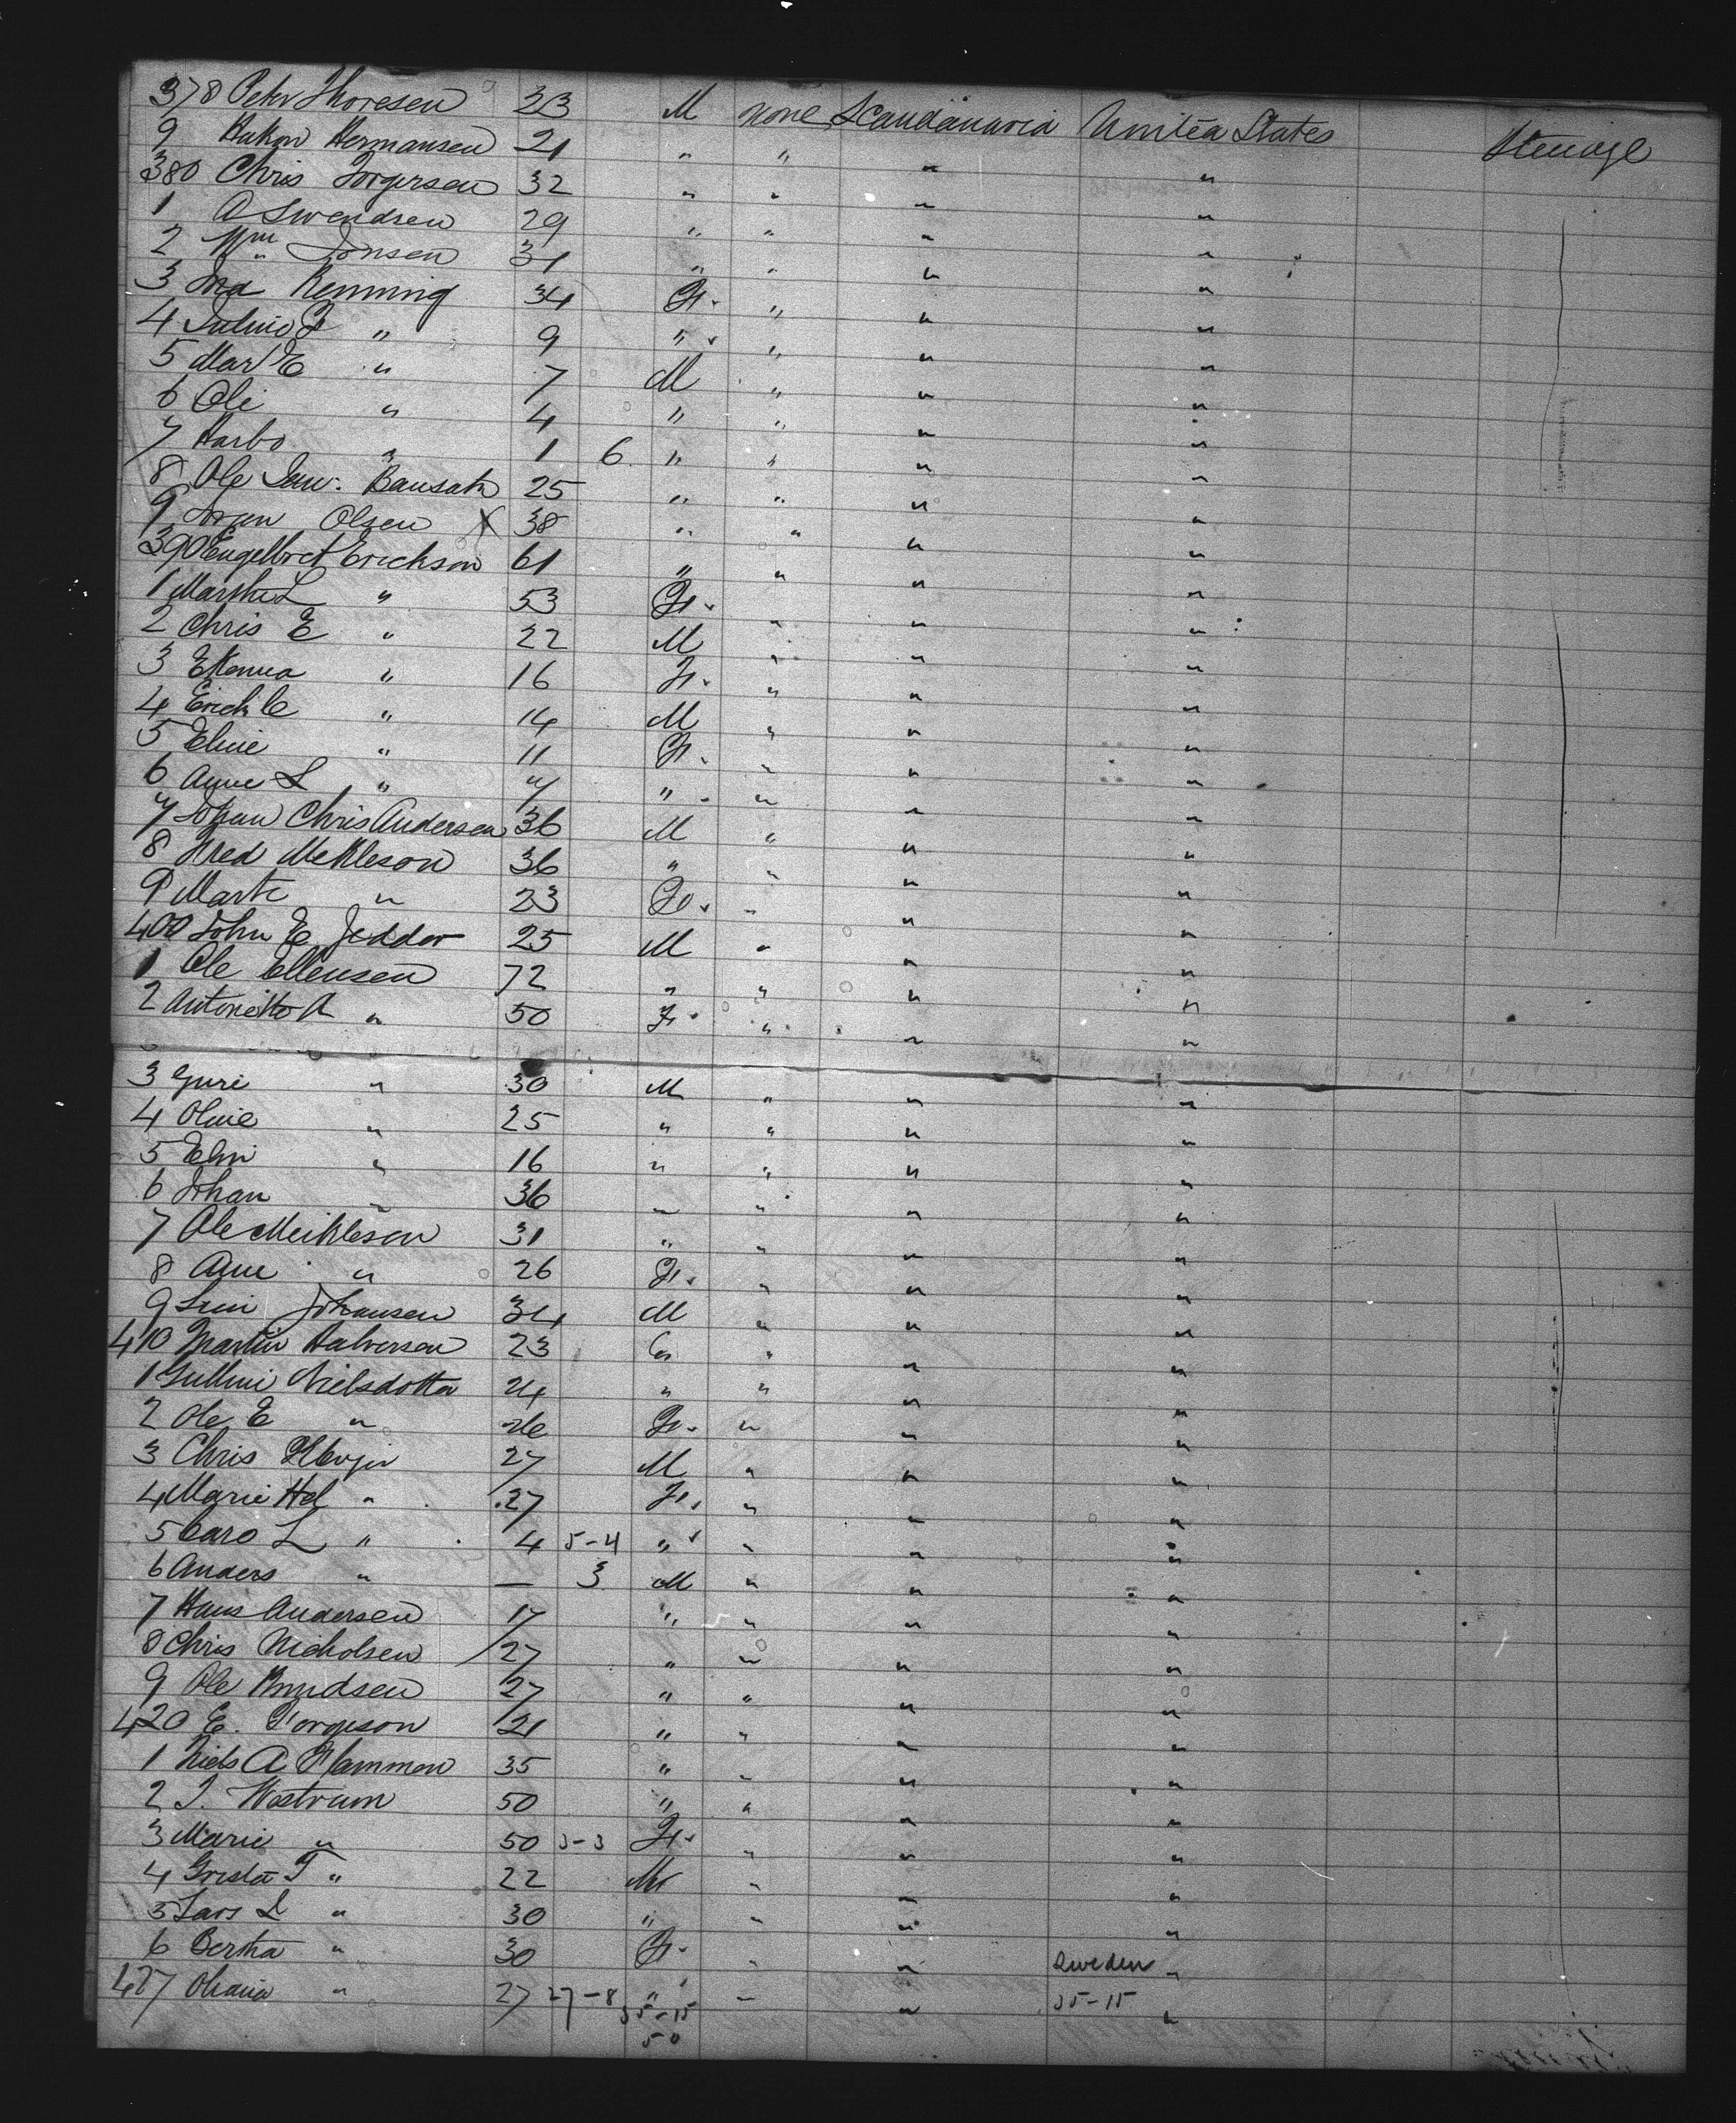 378 Peter Thoresen 23 M none Scandanavia United States Steerage
9 Hakon Hermansen 21 " " " "
380 Chris Torgersen 32 " " " "
1 A Swendsen 29 " " " "
2 Wm Jonsen 31 " " " "
3 Ina Renning 34 F. " " "
4 " 9 " " " "
5 Mart E " 7 M " " "
6 Ole " 4 " " " "
7 Harbo " 1 6 " " " "
8 Ole Bausatr 25 " " " "
9 Olsen X 38 " " " "
390 Engelbret Erickson 61 " " " "
1 Marthe L " 53 F. " " "
2 Chris E " 22 M " " "
3 " 16 F. " " "
4 Erick C " 14 M " " "
5 Eline " 11 F. " " "
6 Anne L " 7 " " " "
7 Johan Chris Andersen 36 M " " "
8 Fred Mekleson 36 " " " "
9 Marte " 23 F. " " "
400 John E Jeddor 25 M " " "
1 Ole Ellensen 72 " " " "
2 Antonette A " 50 F. " " "
3 Guri " 30 M " " "
4 Oline " 25 " " " "
5 Elin " 16 " " " "
6 Johan " 36 " " " "
7 Ole Meikleson 31 " " " "
8 Ane " 26 F. " " "
9 Johansen 34 M " " "
410 Martin Halversen 23 " " "
1 Nielsdotter 24 " " " "
2 Ole E " F. " " "
3 Chris 27 M " " "
4 Marie Hd " 27 F. " " "
5 Caro L " 4 5-4 " " " "
6 Anders " — 3 M " " "
7 Hans Andersen 17 " " " "
8 Chris Nicholsen 27 " " " "
9 Ole Knudsen 27 " " " "
420 E. Torgeson 21 " " " "
1 Niels A Hammon 35 " " " "
2 J. Westrum 50 " " " "
3 Marie " 50 3-3 F. " " "
4 T " 22 M " " "
5 Lars L " 30 " " " "
6 Bertha " 30 F. " " Sweden "
427 Oliana " 27 27-8 " " " 35-15 "
35-15
50